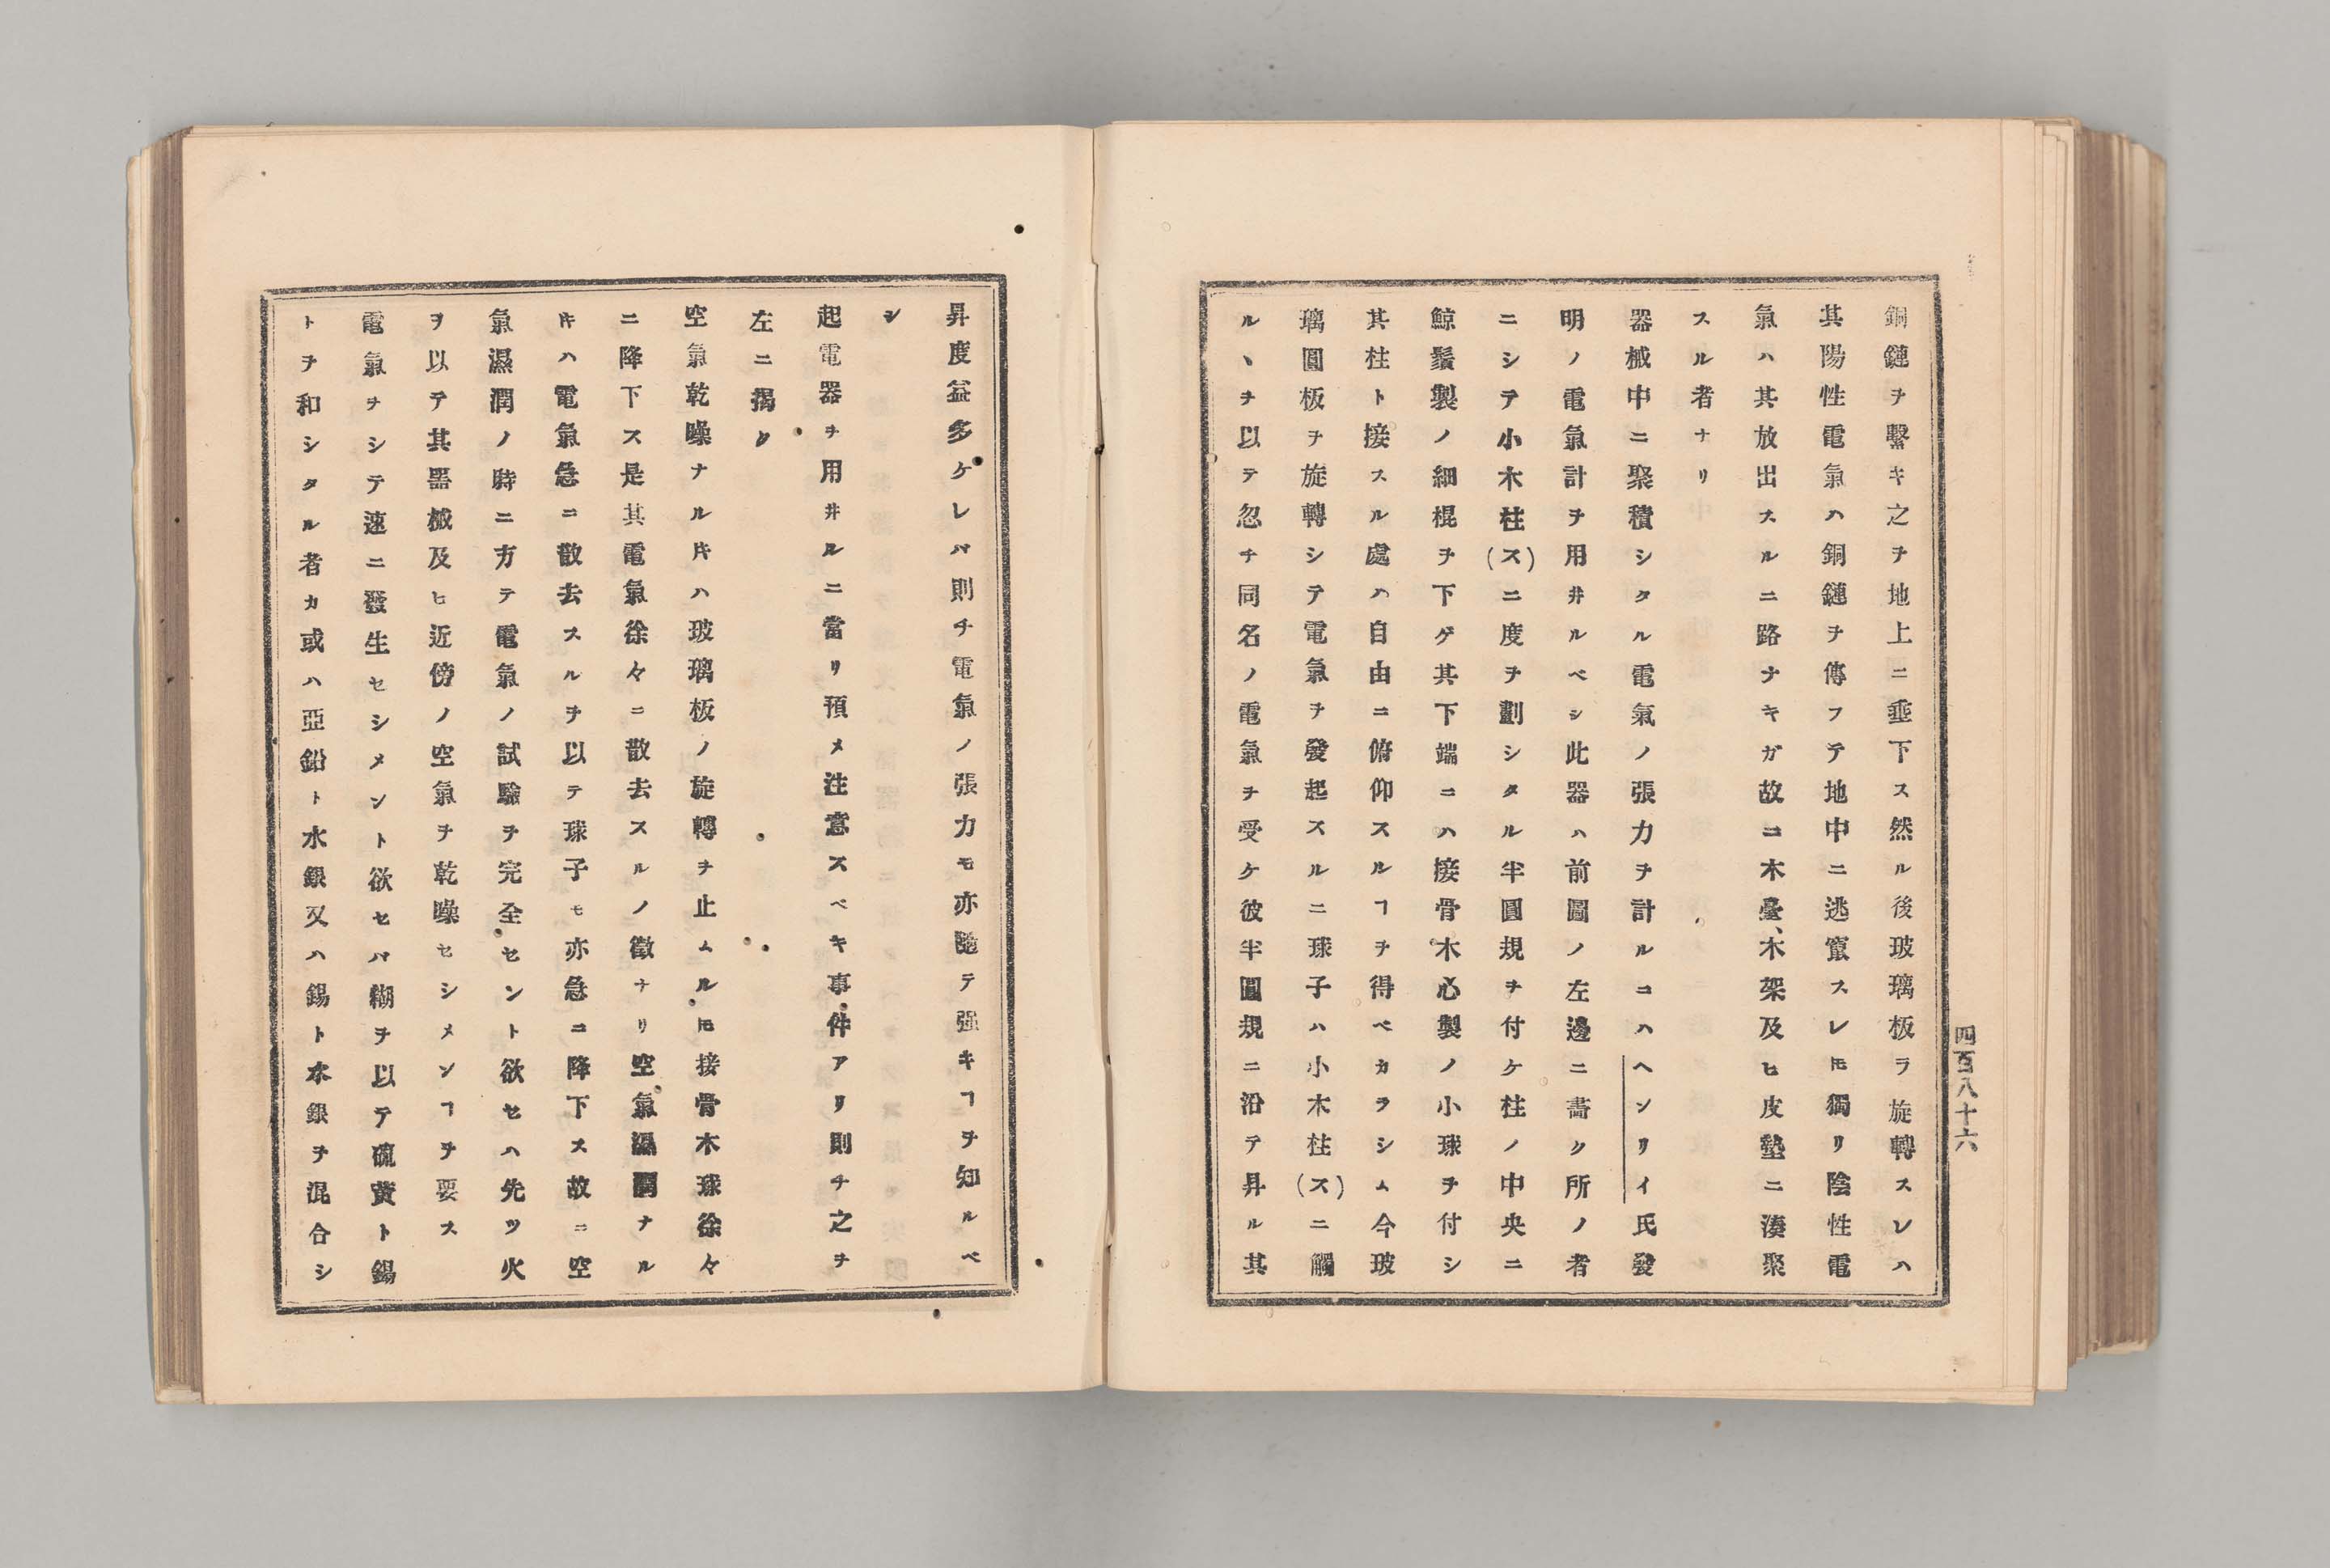 四百八十六
銅鏈ヲ繫キ之ヲ地上ニ垂下ス然ル後玻璃板ヲ旋轉スレハ
其陽性電氣ハ銅鏈ヲ傳フテ地中ニ逃竄スレ𪜈獨リ陰性電
氣ハ其放出スルニ路ナキガ故ニ木臺、木架及ヒ皮墊ニ湊聚
スル者ナリ
器械中ニ聚積シタル電氣ノ張力ヲ計ルニハヘンリイ氏發
明ノ電氣計ヲ用井ルベシ此器ハ前圖ノ左邊ニ畫ク所ノ者
ニシテ小木柱(ス)ニ度ヲ劃シタル半圓規ヲ付ケ柱ノ中央ニ
鯨鬚製ノ細棍ヲ下ゲ其下端ニハ接骨木心製ノ小球ヲ付シ
其柱ト接スル處ハ自由ニ俯仰スルヿヲ得ベカラシム今玻
璃圓板ヲ旋轉シテ電氣ヲ發起スルニ球子ハ小木柱(ス)ニ觸
ルヽヲ以テ忽チ同名ノ電氣ヲ受ケ彼半圓規ニ沿テ昇ル其
昇度益多ケレバ則チ電氣ノ張力モ亦隨テ强キヿヲ知ルベ
シ
起電器ヲ用井ルニ當リ預メ注意スベキ事件アリ則チ之ヲ
左ニ揭ク
空氣乾噪ナル片ハ玻璃板ノ旋轉ヲ止ムル𪜈接骨木球徐々
ニ降下ス是其電氣徐々ニ散去スルノ徵ナリ空氣濕潤ナル
片ハ電氣急ニ散去スルヲ以テ球子モ亦急ニ降下ス故ニ空
氣濕潤ノ時ニ方テ電氣ノ試驗ヲ完全セント欲セハ先ツ火
ヲ以テ其器械及ヒ近傍ノ空氣ヲ乾噪セシメンヿヲ要ス
電氣ヲシテ速ニ發生セシメント欲セバ糊ヲ以テ硫黄ト錫
トヲ和シタル者カ或ハ亞鉛ト水銀又ハ錫ト水銀ヲ混合シ